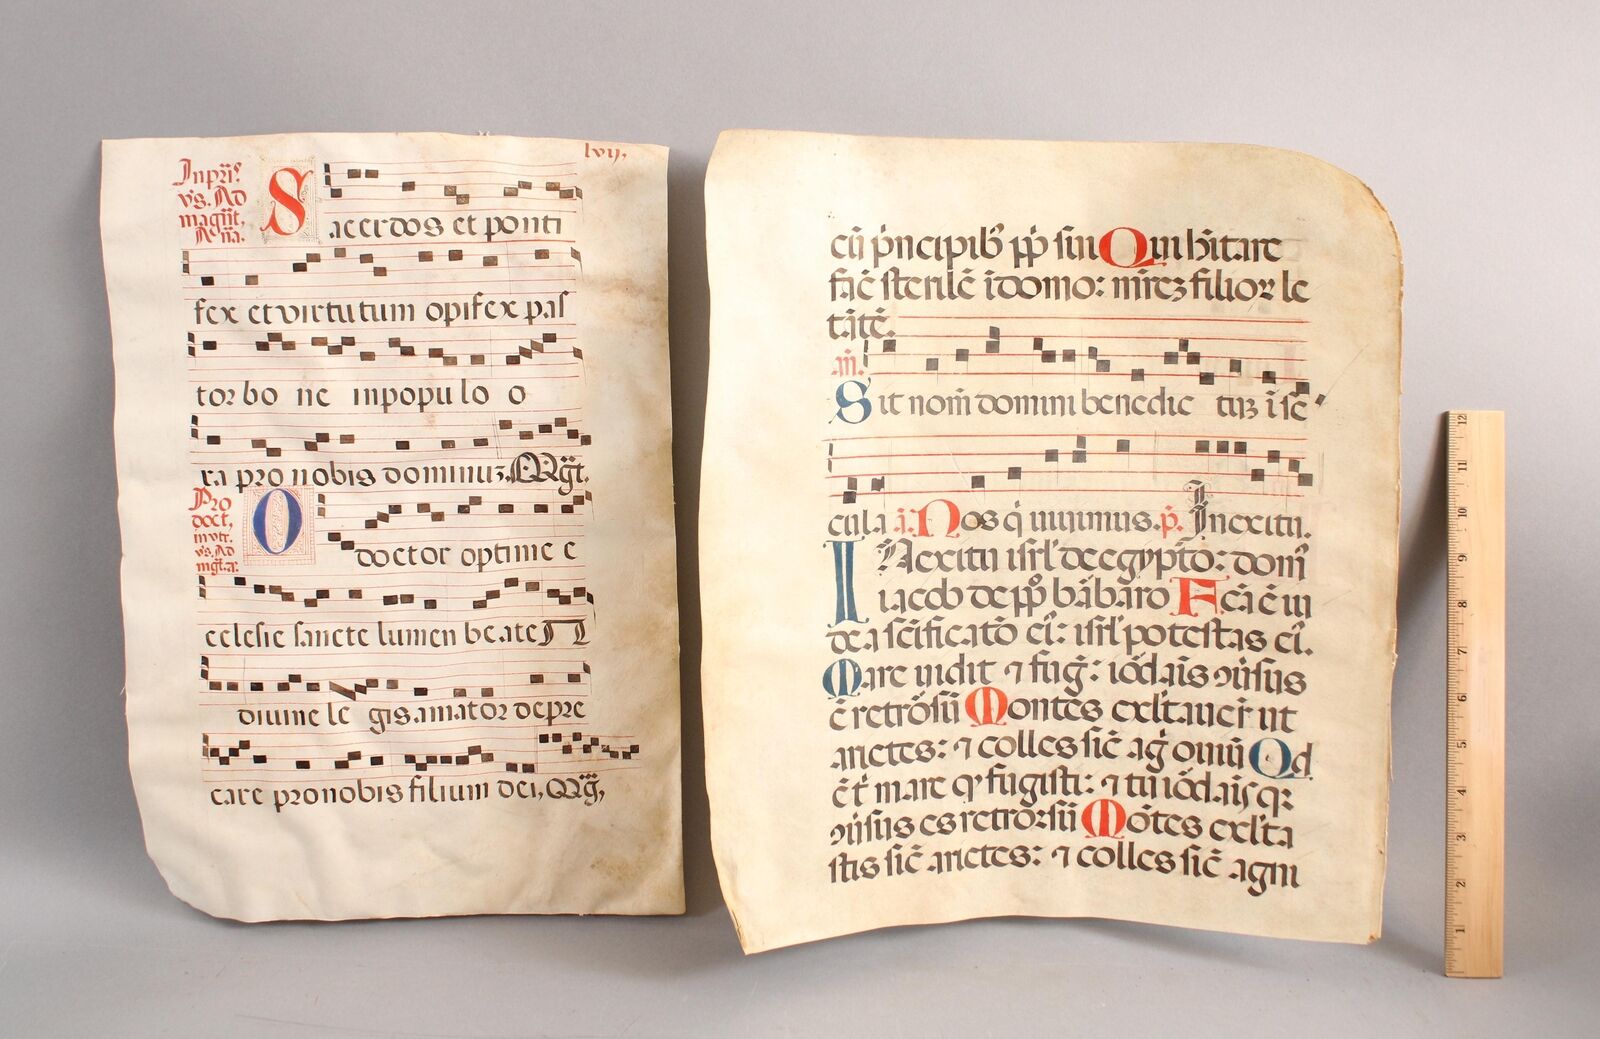 lvij.
In pri⁹
vs. Ad
magnt.
Aña.
Sacerdos et ponti
fex et virtutum opifex pas
tor bo ne in populo o
ra pro nobis dominuz.
Pro
doct,
in vtr.
vs. Ad
mgt. a.
O doctor optime e
eclesie sancte lumen beate
diuine le gis amator depre
care pro nobis filium dei,
cū pncipib⁹ pp̄ sui Qui hītare
fac̄ sterilē ī domo: mrēz filioꝝ le
tātē.
añ.
Sit nom̄ domini benedic tuz ī se
cula ā. Nos q̄ uiuimus. p̄. In exitu.
IN exitu isrl̄ de egypto: dom⁹
iacob de pplo bābaro Fcā ē iu
dea scificatō ei⁹: isrl̄ potestas ei⁹.
Mare uidit ⁊ fug̃: iōdais ɔuersus
ē retrōsū Montes exl̄tauer̄ ut
arietes: ⁊ colles sic̄ ag̃ ouiū Qd
ē t̄ mare q⁹ fugisti: ⁊ tu iōdais qꝛ
ɔuersus es retrorsū Mōtes exl̄ta
stis sic̄ arietes: ⁊ colles sic̄ agni
12
11
10
9
8
7
6
5
4
3
2
1